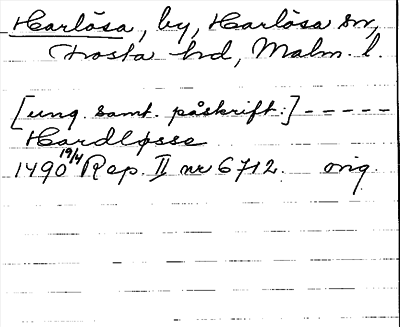 Harlösa, by, Harlösa sn,
Frosta hd, Malm. l.
[ung. samt. påskrift:] -----
Hardløsse
1490 19/4 Rep. II nr 6712. orig.